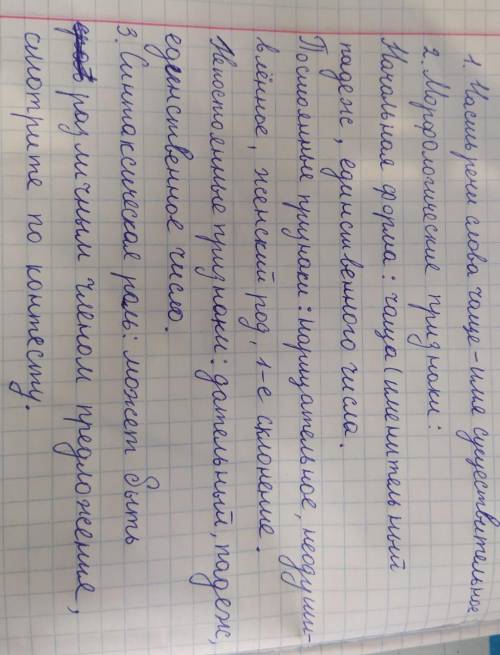 1. Часть речи слова чаще - имя существительное
2. Морфологические признаки:
Начальная форма: чаща (именительный
падеж, единственного числа.
Постоянные признаки: нарицательное, неодушев-
влённое, женский род, 1-е склонение.
Непостоянные признаки: дательный, падеж,
единственное число.
3. Синтаксическая роль: может быть
различным членом предложения,
смотрите по контесту.